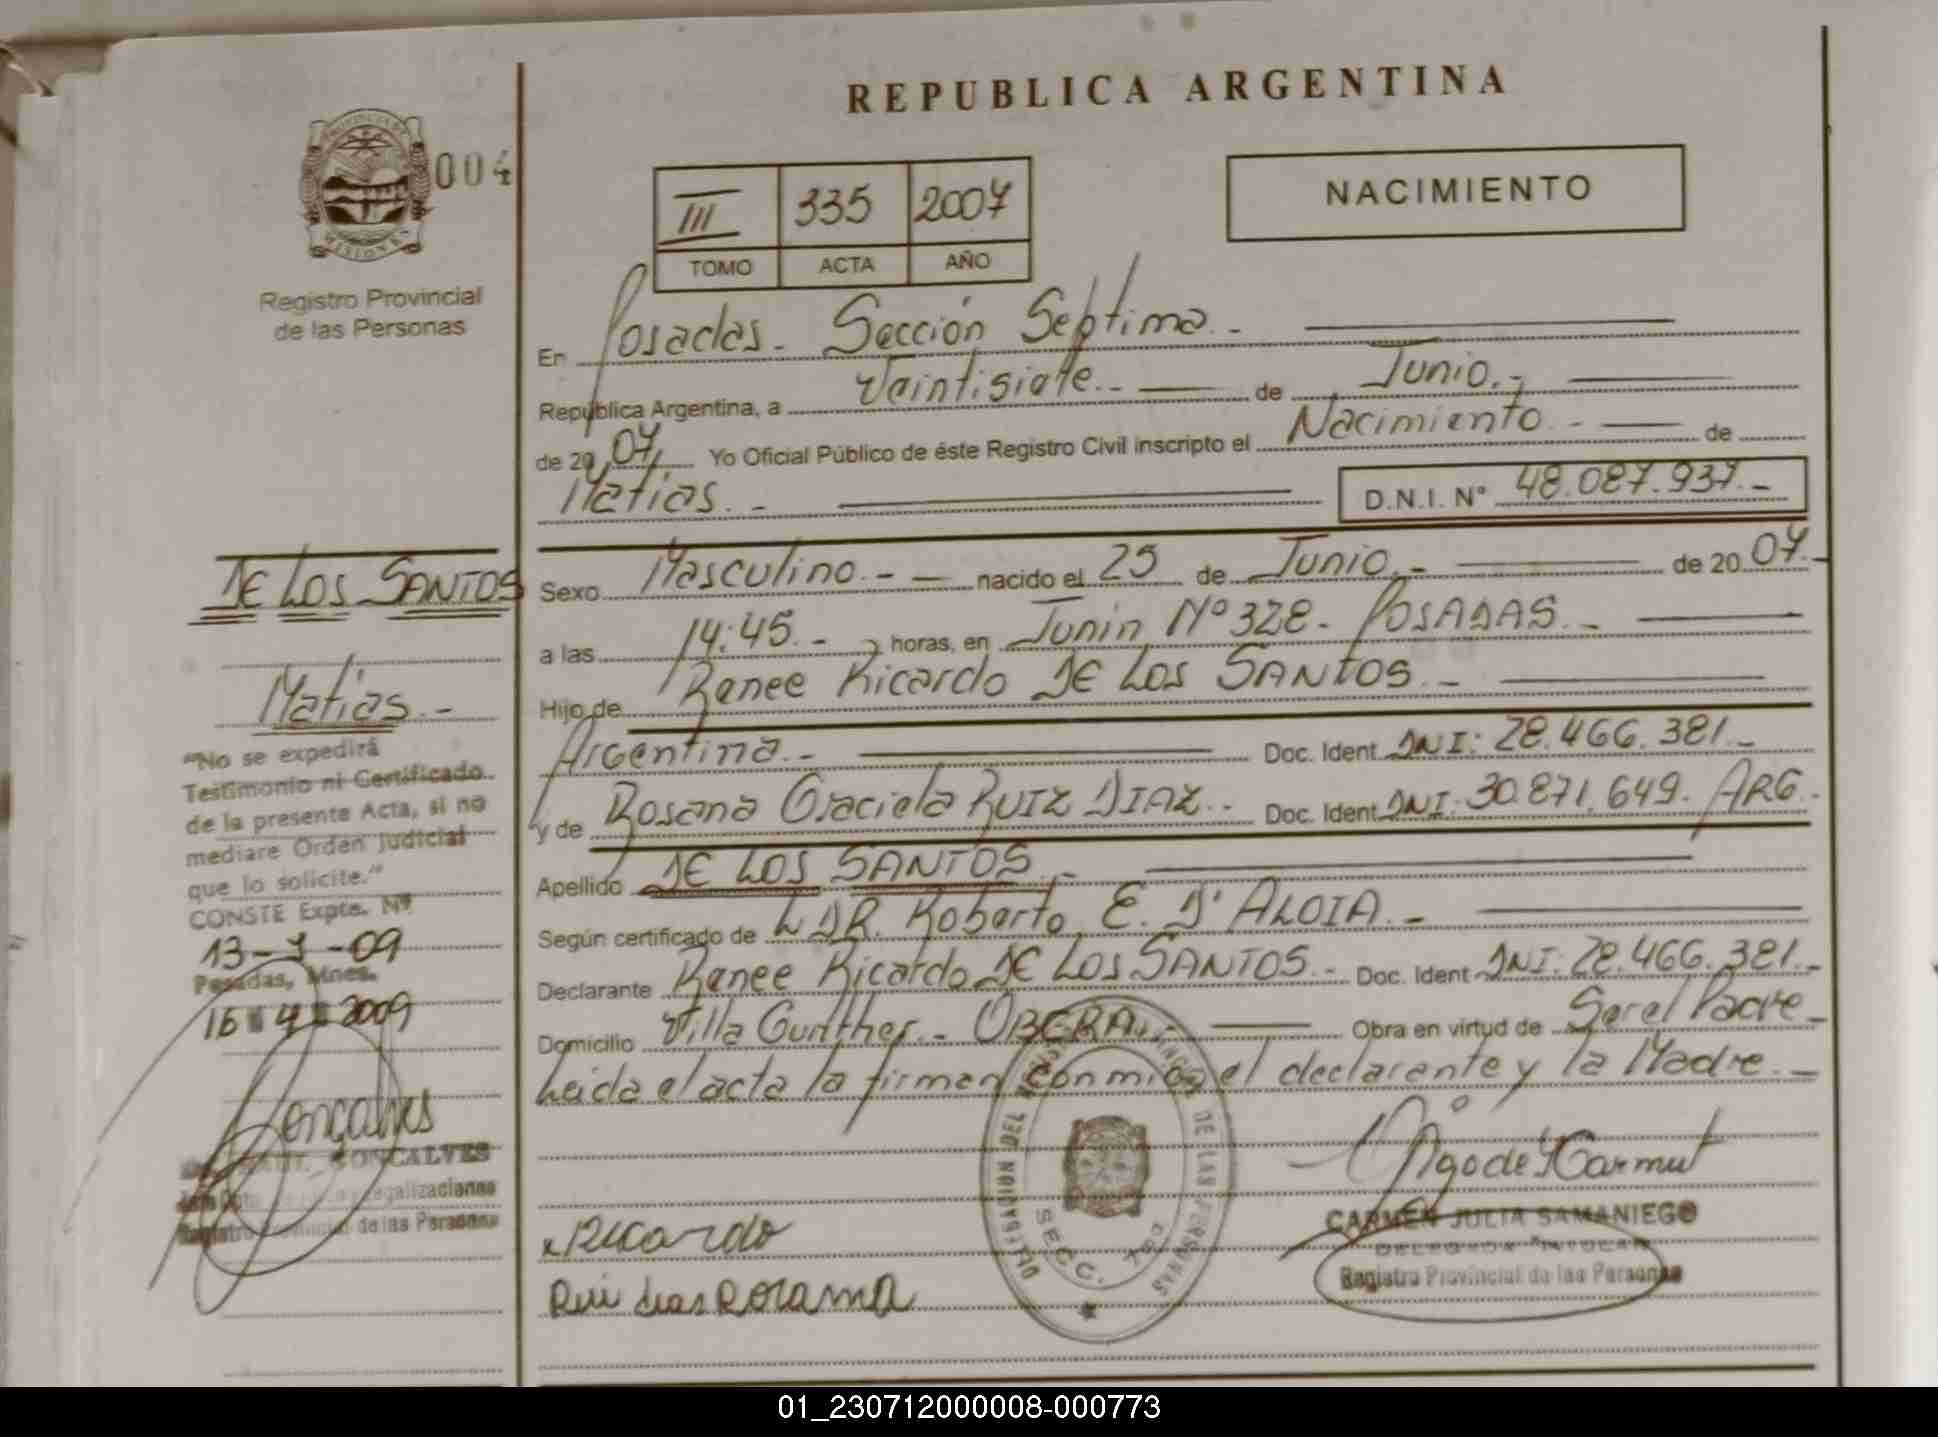 REPUBLICA ARGENTINA
PROVINCIA DE
MISIONES
004
Registro Provincial
de las Personas
III 335 2007
TOMO ACTA AÑO
NACIMIENTO
En Posadas - Sección Septima. -
República Argentina, a Veintisiete. - de Junio. -
de 2007. Yo Oficial Público de éste Registro Civil inscripto el Nacimiento. - de
Matias. - D.N.I. N° 48.087.937. -
DE LOS SANTOS
Matias. -
"No se expedirá
Testimonio ni Certificado
de la presente Acta, si no
mediare Orden Judicial
que lo solicite."
CONSTE Expte. Nº
13-7-09
Posadas, Mnes.
16 4 2009
Goncalves
RAUL GONCALVES
Legalizaciones
Registro Provincial de las Personas
Sexo Masculino. - - nacido el 25 de Junio. - de 2007. -
a las 14:45. - horas, en Junin Nº 328 - POSADAS. -
Hijo de Renee Ricardo DE LOS SANTOS. -
Argentina. - Doc. Ident DNI: 28.466.381. -
y de Rosana Graciela RUIZ DIAZ. - Doc. Ident DNI: 30.871.649. ARG. -
Apellido DE LOS SANTOS. -
Según certificado de DR. Roberto E. D'ALOIA. -
Declarante Renee Ricardo DE LOS SANTOS. - Doc. Ident DNI: 28.466.381. -
Domicilio Villa Gunther. - OBERA. - Obra en virtud de Ser el Padre -
Leida el acta la firman conmigo el declarante y la Madre. -
DELEGACION DEL REGISTRO PROVINCIAL DE LAS PERSONAS
SECC. 7ma
CARMEN JULIA SAMANIEGO
DELEGADA TITULAR
Registro Provincial de las Personas
Ricardo
Rui dias Rosana
01_230712000008-000773